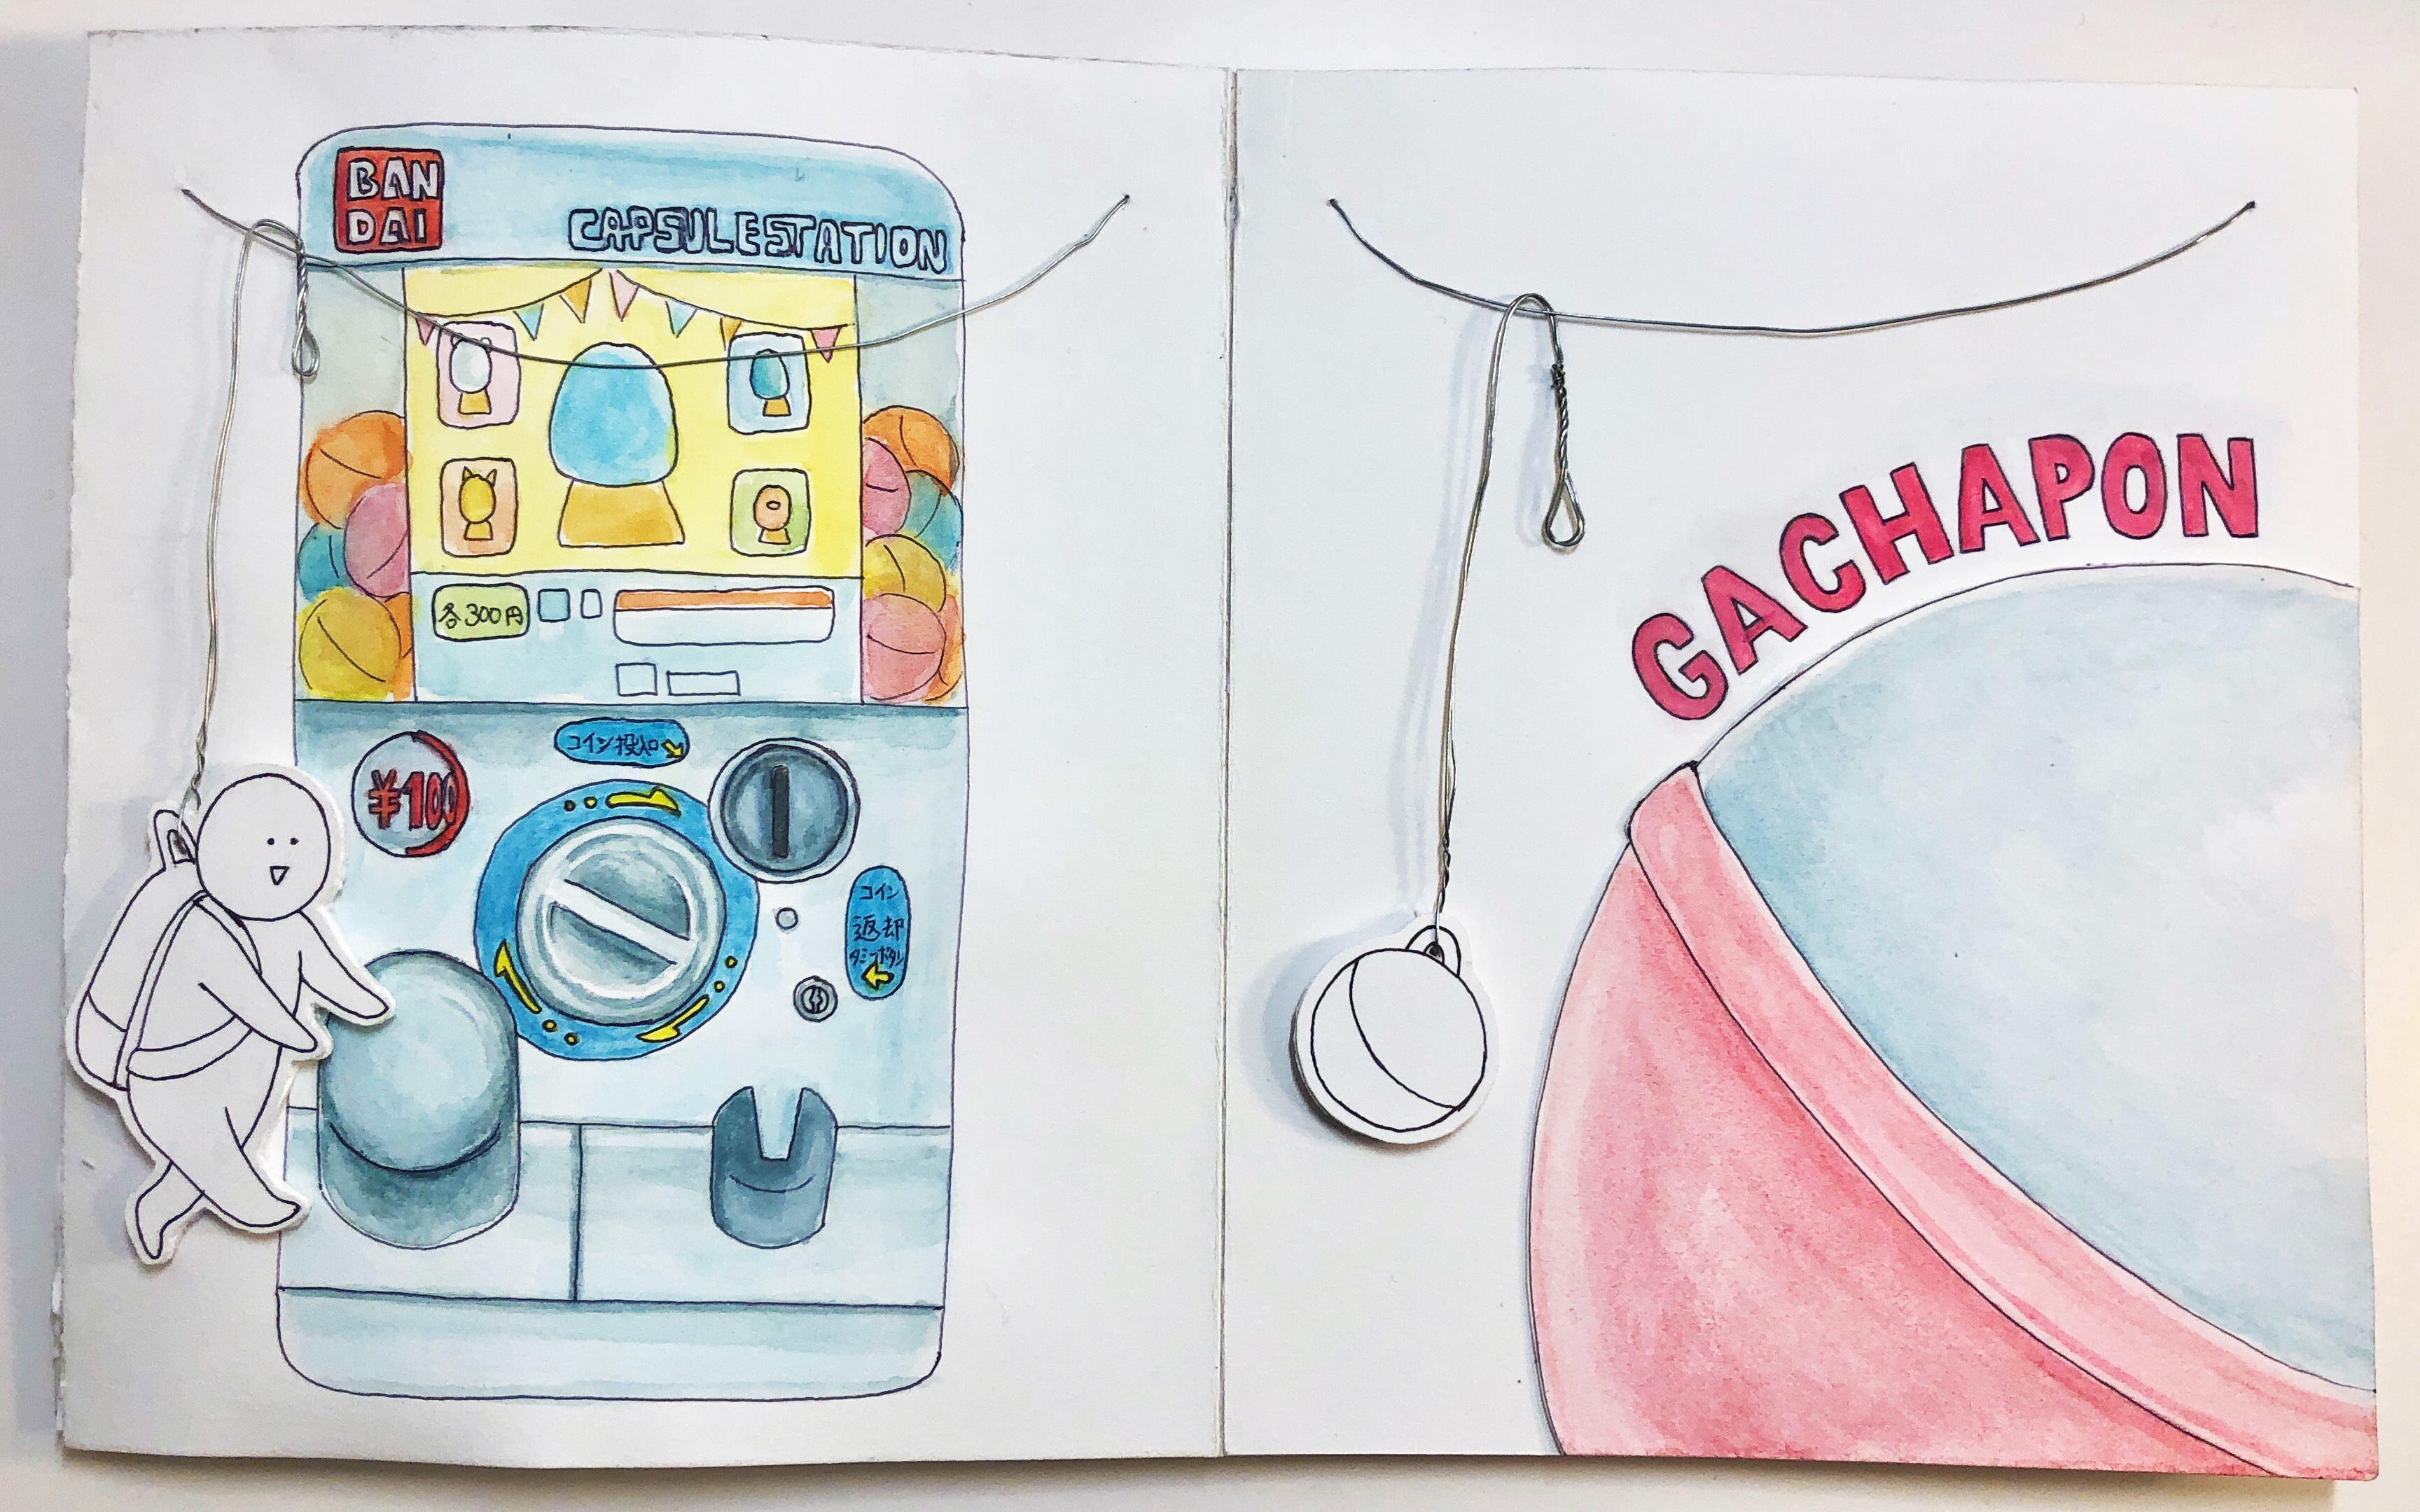 BAN
DAI
CAPSULESTATION
各300円
コイン投入口
¥100
コイン
返却
GACHAPON